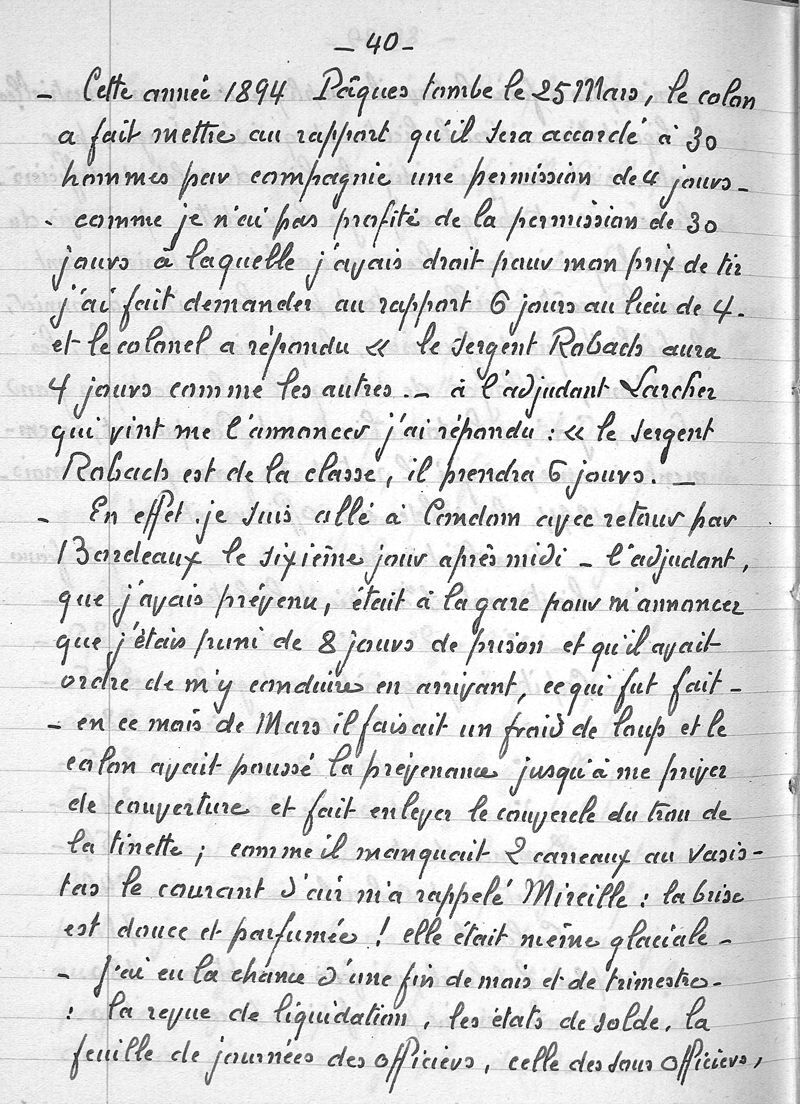 - 40 -
- Cette année 1894 Pâques tombe le 25 Mars, le colon
a fait mettre au rapport qu'il sera accordé à 30
hommes par compagnie une permission de 4 jours -
- comme je n'ai pas profité de la permission de 30
jours à laquelle j'avais droit pour mon prix de tir
j'ai fait demander au rapport 6 jours au lieu de 4.
et le colonel a répondu « le sergent Robach aura
4 jours comme les autres. - à l'adjudant Larcher
qui vint me l'annoncer j'ai répondu : « le sergent
Robach est de la classe, il prendra 6 jours. -
- En effet je suis allé à Condom avec retour par
Bordeaux le sixième jour après midi - l'adjudant,
que j'avais prévenu, était à la gare pour m'annoncer
que j'étais puni de 8 jours de prison et qu'il avait
ordre de m'y conduire en arrivant, ce qui fut fait -
- en ce mois de Mars il faisait un froid de loup et le
colon avait poussé la prévenance jusqu'à me priver
de couverture et fait enlever le couvercle du trou de
la tinette ; comme il manquait 2 carreaux au vasis-
tas le courant d'air m'a rappelé Mireille : la brise
est douce et parfumée ! elle était même glaciale -
- J'ai eu la chance d'une fin de mois et de trimestre -
: la revue de liquidation, les états de solde, la
feuille de journées des officiers, celle des sous officiers,